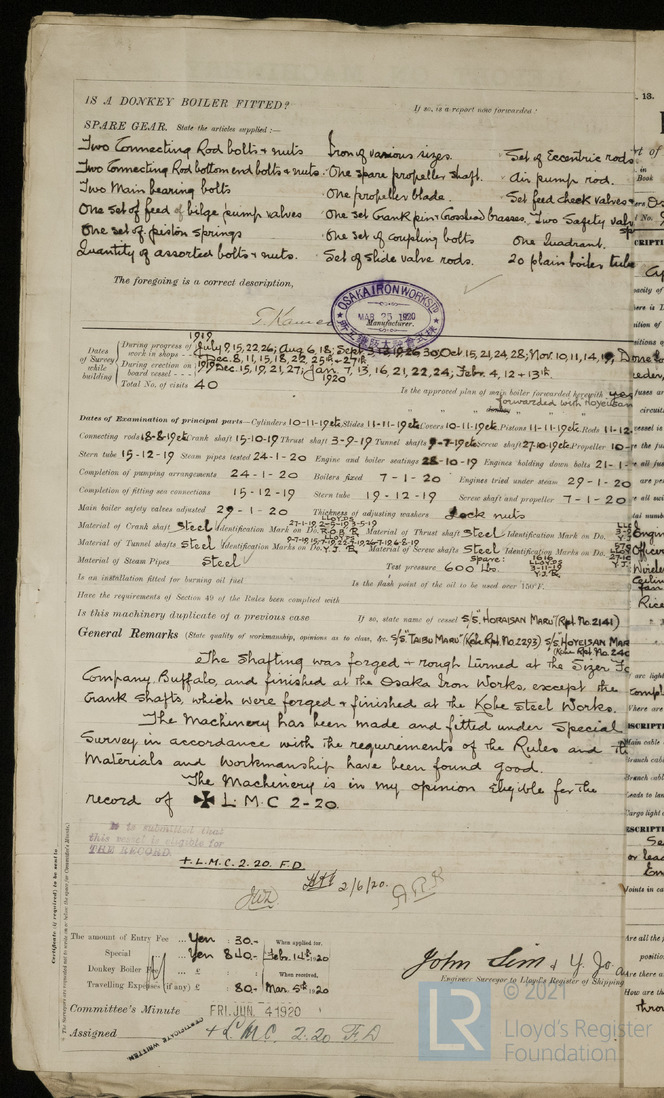 IS A DONKEY BOILER FITTED?
If so, is a report now forwarded?
SPARE GEAR. State the articles supplied:—
Two Connecting Rod bolts & nuts Iron of various sizes. Set of Eccentric rods
Two Connecting Rod bottom end bolts & nuts. One spare propeller shaft. Air pump rod.
Two Main bearing bolts One propeller blade. Set feed check valves
One set of feed & bilge pump valves One set Crank pin & Crosshead brasses. Two Safety valv
One set of piston springs One set of coupling bolts One Quadrant.
Quantity of assorted bolts & nuts. Set of slide valve rods. 20 plain boiler tube
The foregoing is a correct description,
OSAKA IRON WORKS LTD
MAR 25 1920
Manufacturer.
Dates of Survey while building
1919
During progress of work in shops - - July 9, 15, 22, 26; Aug 6, 18; Sept 3, 12, 19, 26, 30; Oct 15, 21, 24, 28; Nov 10, 11, 14, 19,
Dec. 8, 11, 15, 18, 22, 25th - 27th
During erection on board vessel - - - 1919 Dec. 15, 19, 21, 27; Jan 7, 13, 16, 21, 22, 24; Febr. 4, 12 + 13th.
1920
Total No. of visits 40
Is the approved plan of main boiler forwarded herewith yes
forwarded with Hoyeisan
Dates of Examination of principal parts—Cylinders 10-11-19 etc Slides 11-11-19 etc Covers 10-11-19 etc. Pistons 11-11-19 etc Rods 11-12
Connecting rods 18-8-19 etc Crank shaft 15-10-19 Thrust shaft 3-9-19 Tunnel shafts 9-7-19 etc Screw shaft 27-10-19 etc Propeller 10-
Stern tube 15-12-19 Steam pipes tested 24-1-20 Engine and boiler seatings 28-10-19 Engines holding down bolts 21-1-
Completion of pumping arrangements 24-1-20 Boilers fixed 7-1-20 Engines tried under steam 29-1-20
Completion of fitting sea connections 15-12-19 Stern tube 19-12-19 Screw shaft and propeller 7-1-20
Main boiler safety valves adjusted 29-1-20 Thickness of adjusting washers Lock nuts
Material of Crank shaft Steel Identification Mark on Do. Material of Thrust shaft Steel Identification Mark on Do.
Material of Tunnel shafts Steel Identification Marks on Do. Material of Screw shafts Steel Identification Marks on Do.
Spare:
Material of Steam Pipes Steel Test pressure 600 lbs.
Is an installation fitted for burning oil fuel Is the flash point of the oil to be used over 150°F.
Have the requirements of Section 49 of the Rules been complied with
Is this machinery duplicate of a previous case If so, state name of vessel S/S "HORAISAN MARU" (Rpt No. 2141)
General Remarks (State quality of workmanship, opinions as to class, &c. S/S "TAIBU MARU" (Kobe Rpt. No. 2293) S/S "HOYEISAN MAR
(Kobe Rpt. No. 240
The Shafting was forged & rough turned at the Sizer Fo
Company, Buffalo, and finished at the Osaka Iron Works, except the
Crank Shafts, which were forged & finished at the Kobe Steel Works.
The Machinery has been made and fitted under Special
Survey in accordance with the requirements of the Rules and the
Materials and Workmanship have been found good.
The Machinery is in my opinion eligible for the
record of ✠ L.M.C 2-20.
It is submitted that
this vessel is eligible for
THE RECORD
+ L.M.C. 2. 20. F.D.
2/6/20.
The amount of Entry Fee ... Yen : 30.- When applied for,
Special ... Yen 840.- Febr. 14th 1920
Donkey Boiler Fee ... £ When received,
Travelling Expenses (if any) £ : 80.- Mar. 5th 1920
John Sim & Y. Jo
Engineer Surveyor to Lloyd's Register of Shipping
Committee's Minute FRI. JUN. 4 1920
Assigned + L.M.C. 2.20 F.D
CERTIFICATE WRITTEN.
© 2021
Lloyd's Register
Foundation
LR